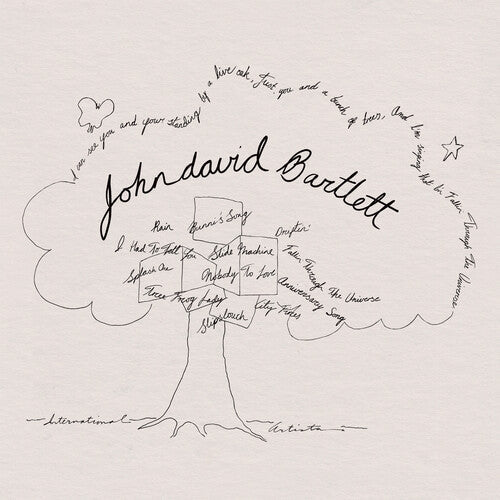 I can see you and your standing by a live oak, Just you and a bunch of trees, And I'm singing that Fallin Through The Universe
John david Bartlett
Rain Bunni's Song Driftin'
I Had To Tell You Slide Machine Fallin Through The Universe
Splash One Nobody To Love Anniversary Song
Frog Lady City
International Artists